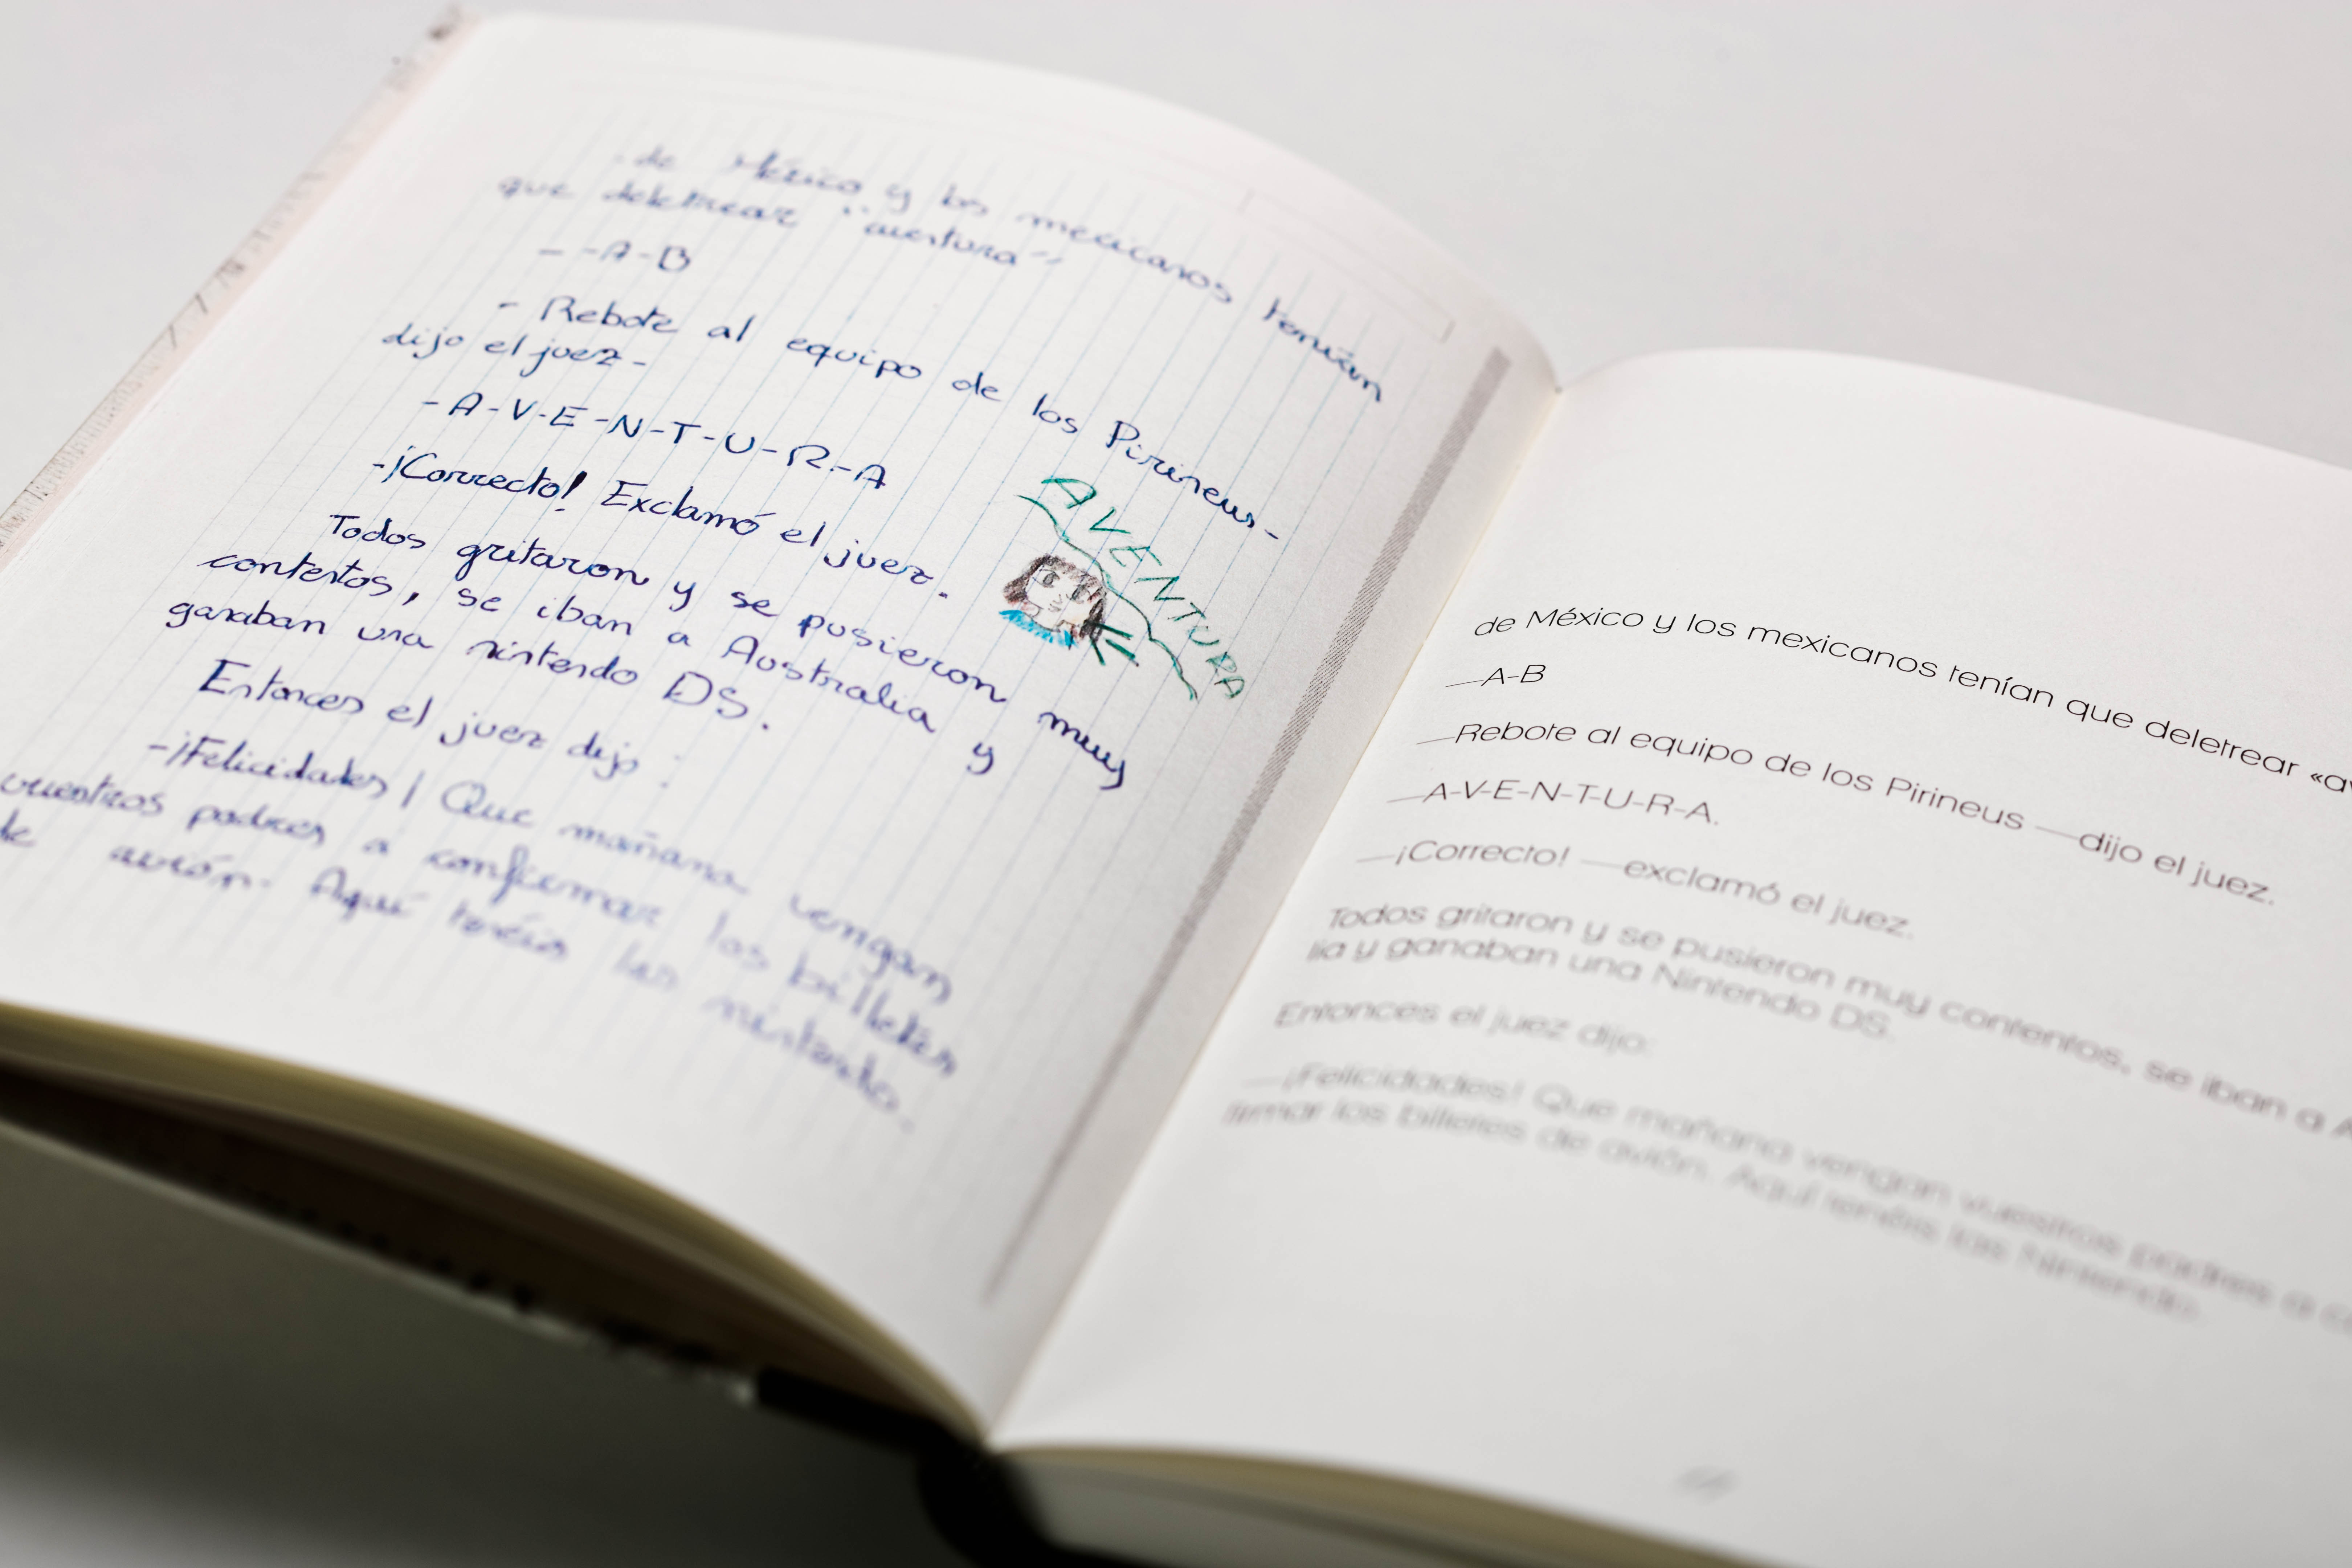 de México y los mexicanos tenían
que deletrear "aventura"
- -A-B
- Rebote al equipo de los Pirineus-
dijo el juez-
-A-V-E-N-T-U-R-A
-¡Correcto! Exclamó el juez.
Todos gritaron y se pusieron muy
contentos, se iban a Australia y
ganaban una nintendo DS.
Entonces el juez dijo:
-¡Felicidades! Que mañana vengan
vuestros padres a confirmar los billetes
de avión. Aquí tenéis las nintendo.
AVENTURA
de México y los mexicanos tenían que deletrear «av
—A-B
—Rebote al equipo de los Pirineus —dijo el juez.
—A-V-E-N-T-U-R-A.
—¡Correcto! —exclamó el juez.
Todos gritaron y se pusieron muy contentos, se iban a A
lia y ganaban una Nintendo DS.
Entonces el juez dijo:
—¡Felicidades! Que mañana vengan vuestros padres a co
firmar los billetes de avión. Aquí tenéis las Nintendo.